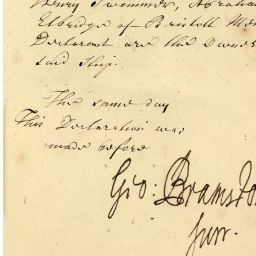 Henry Swimmer, Abraham
Elbridge of Bristoll Mer
Declarent are the Owners
said Ship.
The same day
This Declaration was
made before
Geo: Bramsto
Junr.